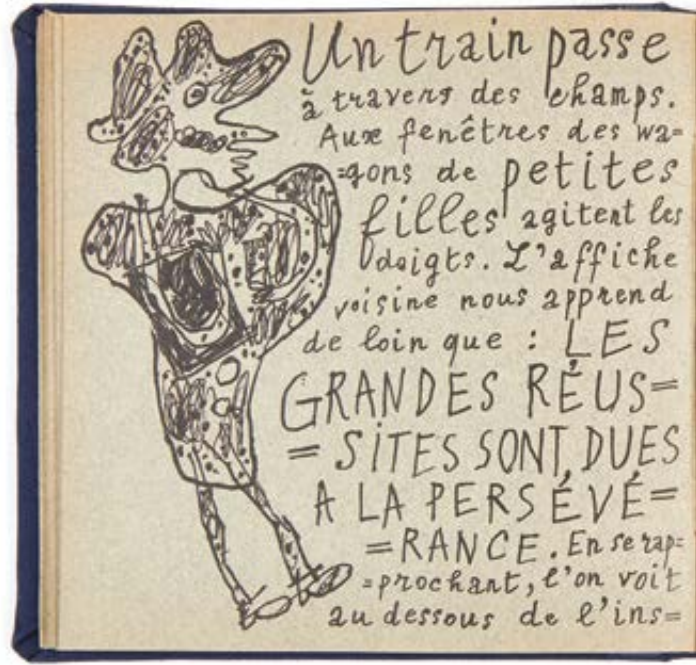 Un train passe
à travers des champs.
Aux fenêtres des wa=
=gons de petites
filles agitent les
doigts. L'affiche
voisine nous apprend
de loin que : LES
GRANDES RÉUS=
=SITES SONT DUES
A LA PERSÉVÉ=
=RANCE. En se rap=
=prochant, l'on voit
au dessous de l'ins=